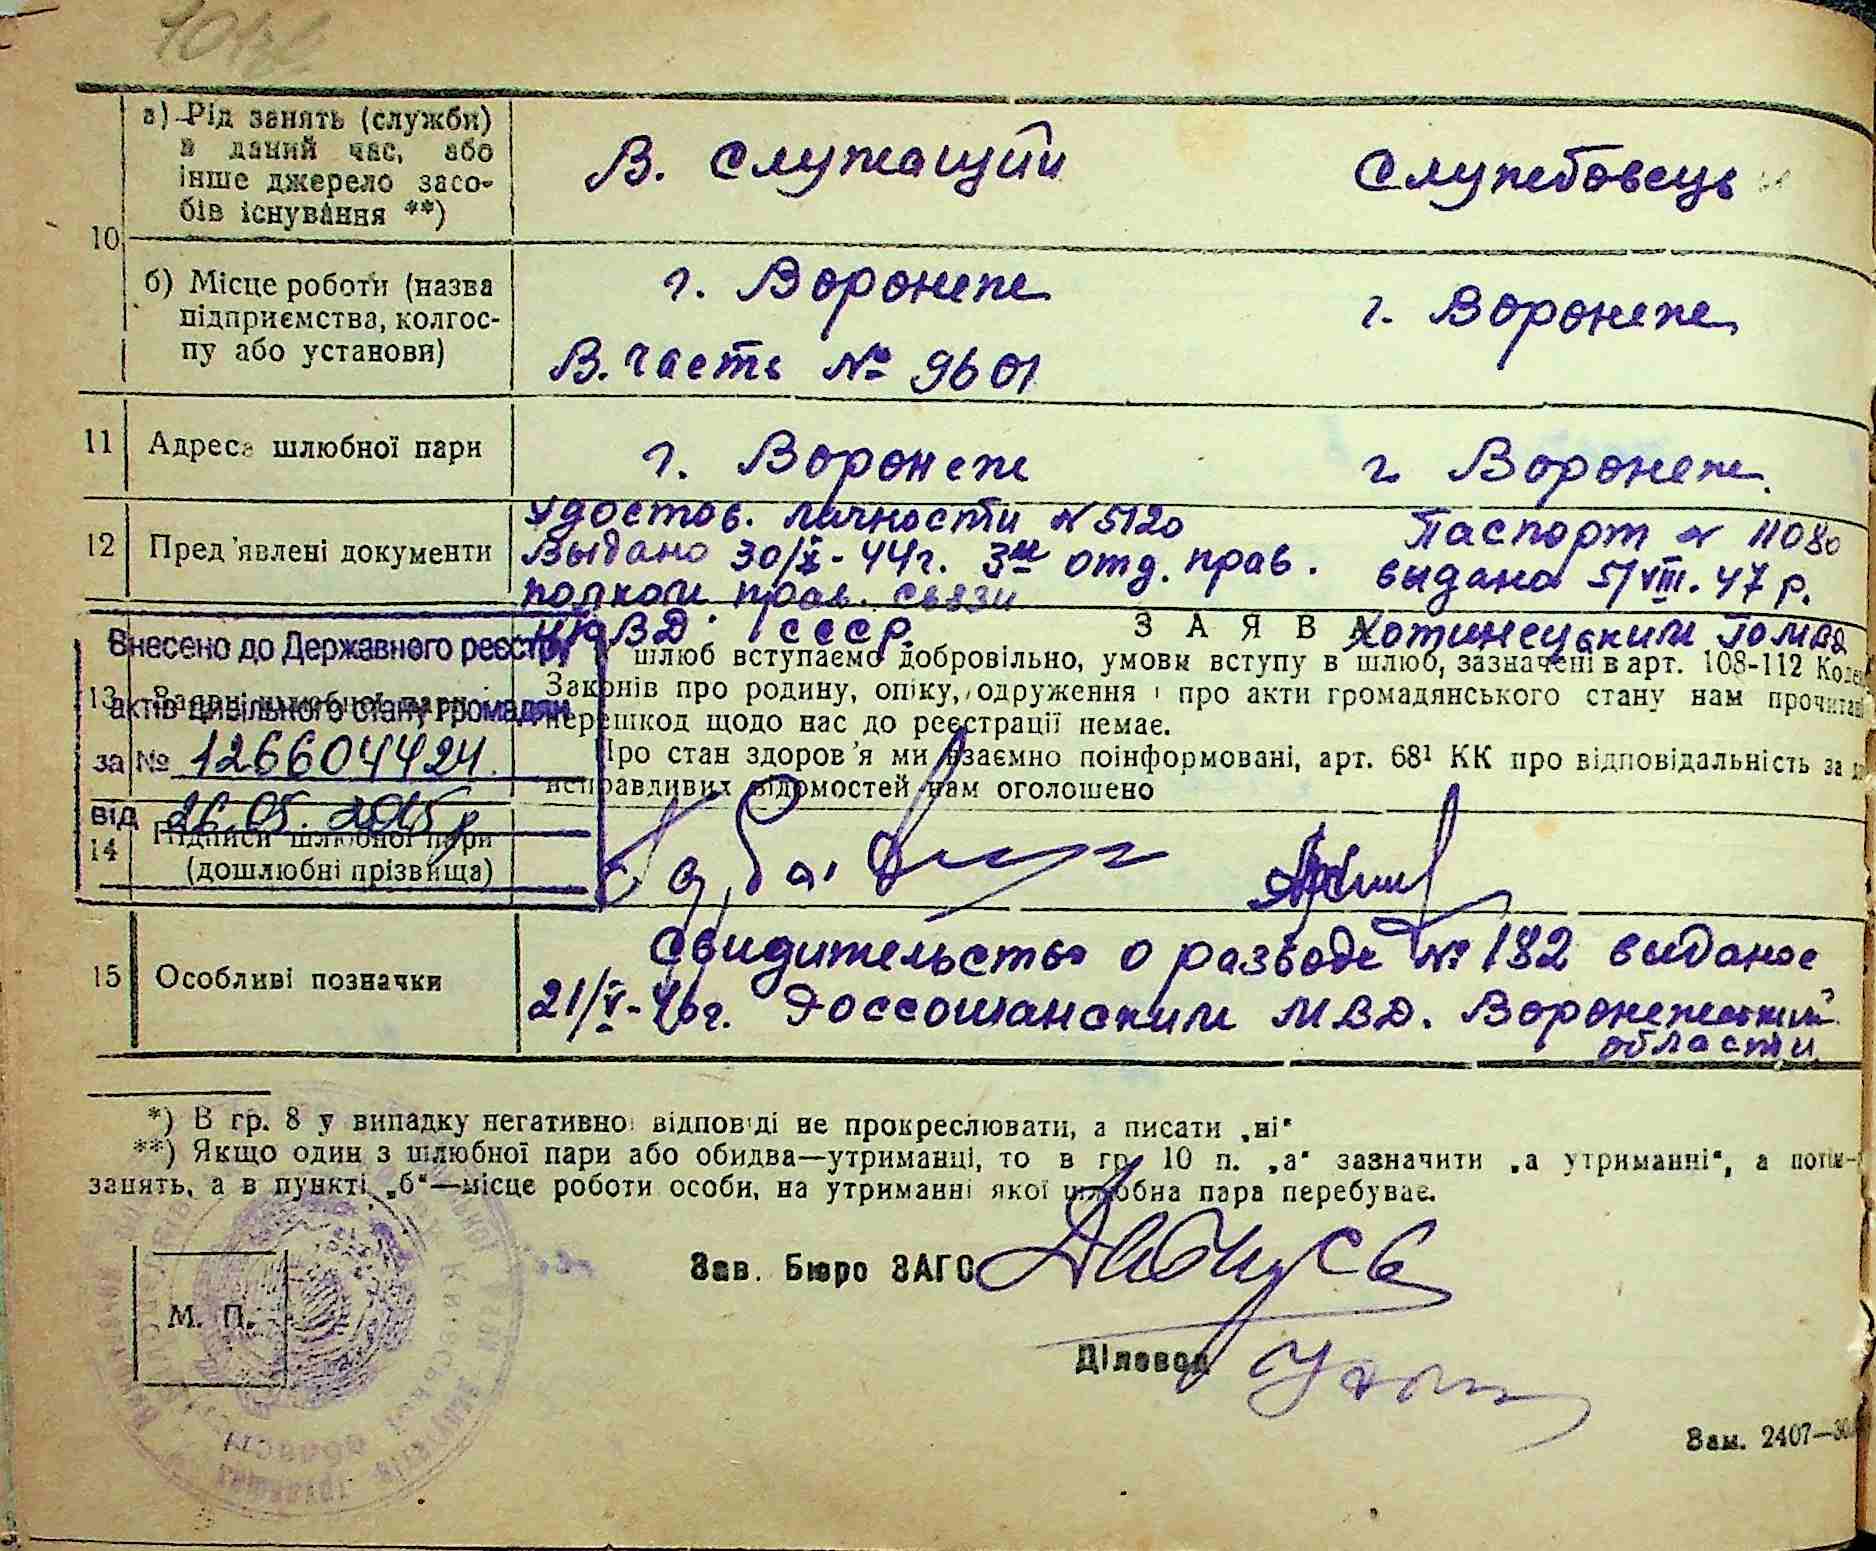 10
а) Рід занять (служби)
в даний час, або
інше джерело засо-
бів існування **)
В. Служащий
Службовець
б) Місце роботи (назва
підприємства, колгос-
пу або установи)
г. Воронеже
В. часть № 9601
г. Воронеже
11 Адреса шлюбної пари
г. Воронеж
г. Воронеж.
12 Пред'явлені документи
Удостов. личности № 5120
Выдано 30/X-44г. 3м отд. прав.
полком прав. связи
НКВД СССР.
Паспорт № 11080
выдано 5/VIII.47 р.
Хотинецьким ГОМВД
ЗАЯВА
шлюб вступаємо добровільно, умови вступу в шлюб, зазначені в арт. 108-112
Законів про родину, опіку, одруження і про акти громадянського стану нам прочитані
перешкод щодо нас до реєстрації немає.
Про стан здоров'я ми взаємно поінформовані, арт. 68¹ КК про відповідальність за
неправдивих відомостей нам оголошено
Внесено до Державного реєстру
актів цивільного стану громадян
за № 126604424
від 26.05.2015р
13 Заява шлюбної пари
14 Підписи шлюбної пари
(дошлюбні прізвища)
15 Особливі позначки
Свидительство о разводе № 182 выданое
21/V-46г. Россошанским МВД. Воронежский
области
*) В гр. 8 у випадку негативної відповіді не прокреслювати, а писати „ні"
**) Якщо один з шлюбної пари або обидва—утриманці, то в гр. 10 п. „а" зазначити „а утриманні", а потім
занять, а в пункті „б"—місце роботи особи, на утриманні якої шлюбна пара перебуває.
М. П.
Зав. Бюро ЗАГС
Діловод
Зам. 2407—30